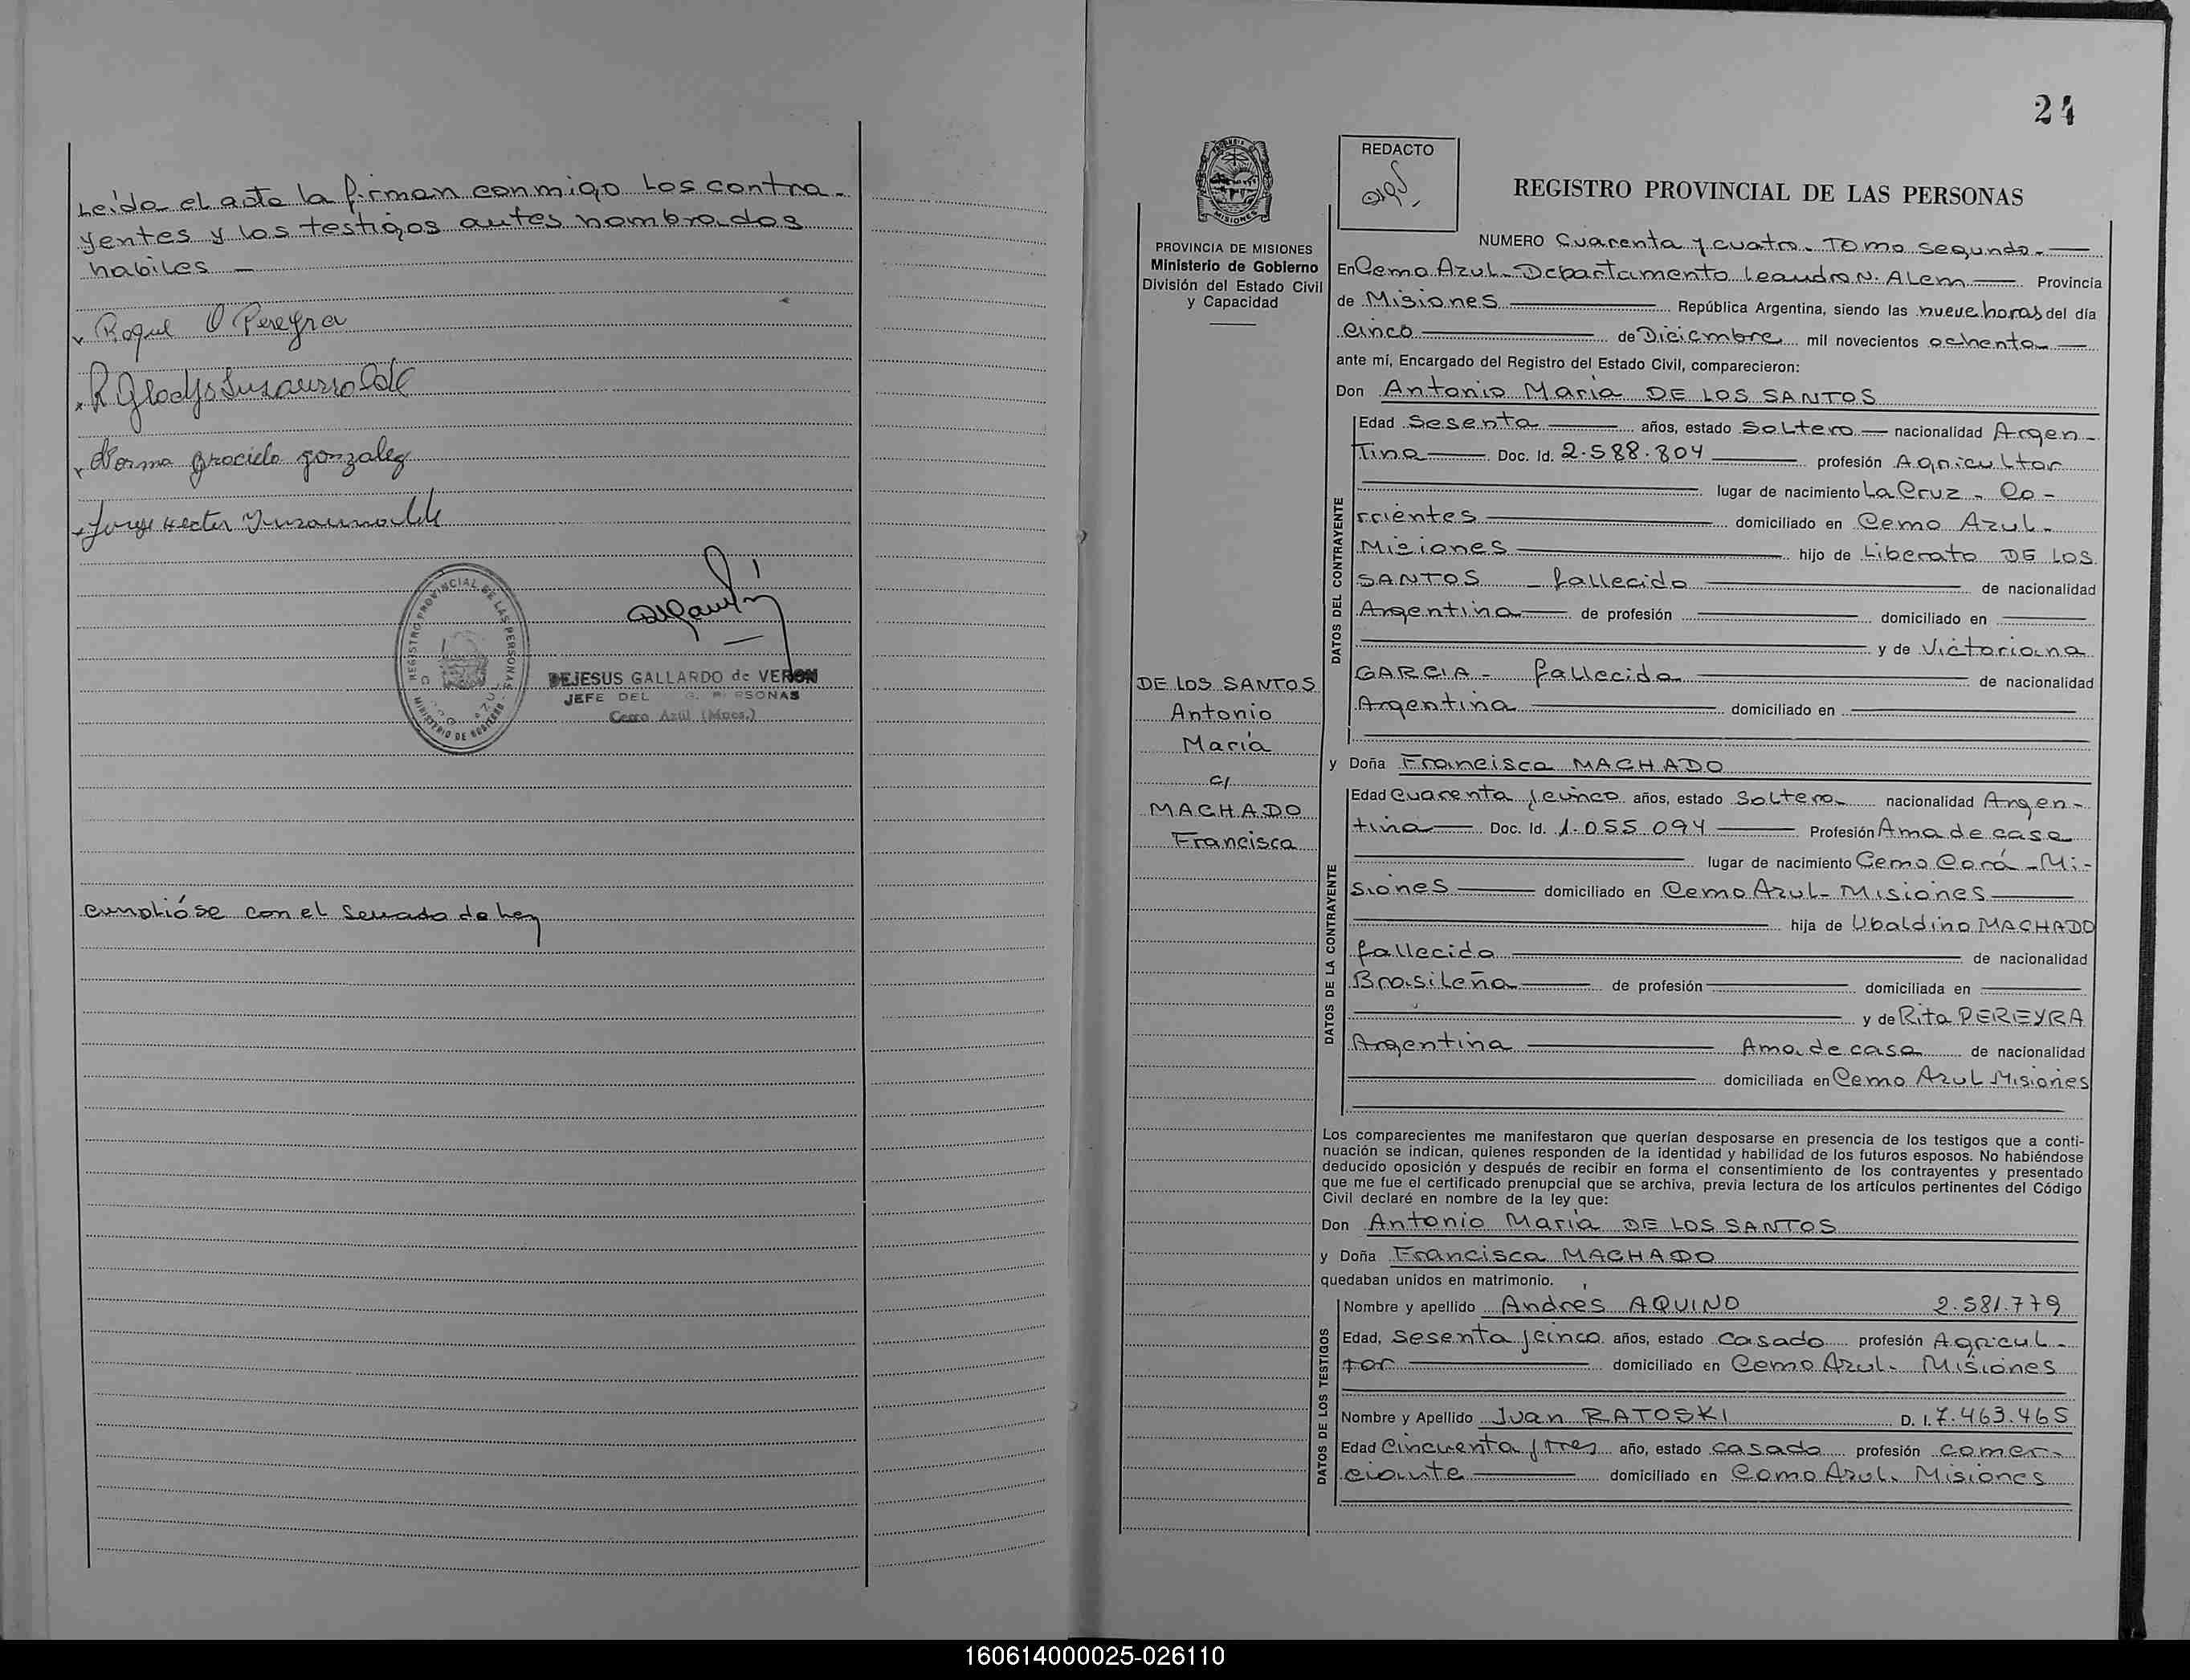 Leida el acta la firman conmigo Los contra-
yentes y los testigos antes nombrados
habiles —
Roque O Pereyra
R Gladys Insaurralde
Norma Graciela gonzalez
Jorge Hector Insaurralde
REGISTRO PROVINCIAL DE LAS PERSONAS
MINISTERIO DE GOBIERNO
DEJESUS GALLARDO de VERON
JEFE DEL PERSONAS
Cerro Azul (Mnes.)
Cumplióse con el sellado de ley
24
REDACTO
REGISTRO PROVINCIAL DE LAS PERSONAS
PROVINCIA DE MISIONES
Ministerio de Gobierno
División del Estado Civil
y Capacidad
DE LOS SANTOS
Antonio
Maria
c/
MACHADO
Francisca
NUMERO Cuarenta y cuatro. Tomo segundo.
En Cerro Azul-Departamento Leandro N. ALem Provincia
de Misiones República Argentina, siendo las nueve horas del día
cinco de Diciembre mil novecientos ochenta
ante mí, Encargado del Registro del Estado Civil, comparecieron:
Don Antonio Maria DE LOS SANTOS
DATOS DEL CONTRAYENTE
Edad Sesenta años, estado Soltero nacionalidad Argen-
tina Doc. Id. 2.588.804 profesión Agricultor
lugar de nacimiento La Cruz - Co-
rrientes domiciliado en Cerro Azul-
Misiones hijo de Liberato DE LOS
SANTOS - fallecido de nacionalidad
Argentina de profesión domiciliado en
y de Victoriana
GARCIA - fallecida de nacionalidad
Argentina domiciliado en
y Doña Francisca MACHADO
DATOS DE LA CONTRAYENTE
Edad Cuarenta y cinco años, estado Soltera nacionalidad Argen-
tina Doc. Id. 1.055.094 Profesión Ama de casa
lugar de nacimiento Cerro Corá-Mi-
siones domiciliado en Cerro Azul-Misiones
hija de Ubaldino MACHADO
fallecido de nacionalidad
Brasileña de profesión domiciliada en
y de Rita PEREYRA
Argentina Ama de casa de nacionalidad
domiciliada en Cerro Azul Misiones
Los comparecientes me manifestaron que querían desposarse en presencia de los testigos que a conti-
nuación se indican, quienes responden de la identidad y habilidad de los futuros esposos. No habiéndose
deducido oposición y después de recibir en forma el consentimiento de los contrayentes y presentado
que me fue el certificado prenupcial que se archiva, previa lectura de los artículos pertinentes del Código
Civil declaré en nombre de la ley que:
Don Antonio Maria DE LOS SANTOS
y Doña Francisca MACHADO
quedaban unidos en matrimonio.
DATOS DE LOS TESTIGOS
Nombre y apellido Andrés AQUINO 2.581.779
Edad, sesenta y cinco años, estado casado profesión Agricul-
tor domiciliado en Cerro Azul- Misiones
Nombre y Apellido Juan RATOSKI D. I. 7.463.465
Edad Cincuenta y tres año, estado casado profesión comer-
ciante domiciliado en Cerro Azul. Misiones
160614000025-026110